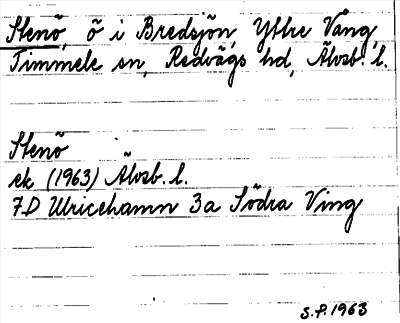 Stenö, ö i Bredsjön, Yttre Vång,
Timmele sn, Redvägs hd, Älvsb. l.
Stenö
ek (1963) Älvsb. l.
7D Ulricehamn 3a Södra Ving
S.P. 1963